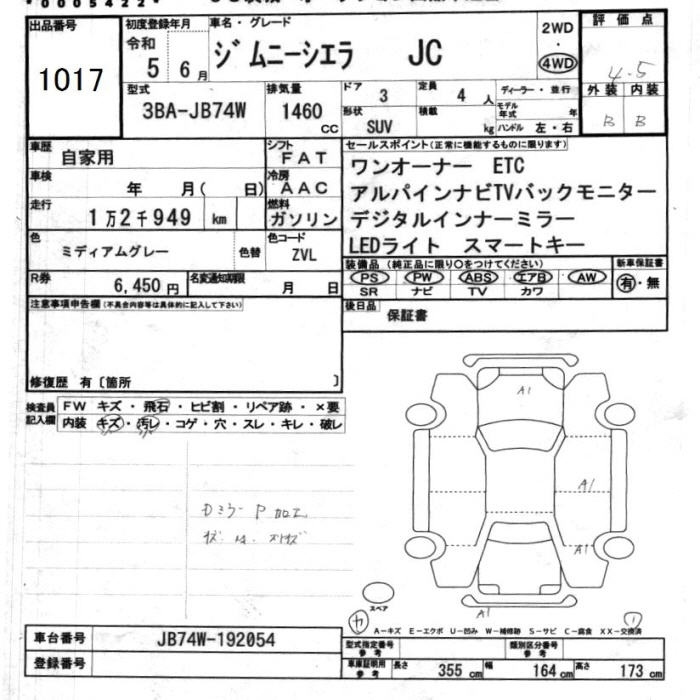 *0005422*
出品番号
1017
初度登録年月
令和
5 6月
車名・グレード
ジムニーシエラ JC
2WD
・
4WD
評価点
4.5
型式
3BA-JB74W
排気量
1460
cc
ドア
3
定員
4 人
形状
SUV
積載
kg
ディーラー・並行
モデル年式
年
ハンドル 左・右
外装 内装
B B
車歴
自家用
シフト
FAT
車検
年 月( 日)
冷房
AAC
走行
1万2千949 km
燃料
ガソリン
色
ミディアムグレー
色替
色コード
ZVL
R券
6,450円
名変通知期限
月 日
セールスポイント(正常に機能するものに限ります)
ワンオーナー ETC
アルパインナビTVバックモニター
デジタルインナーミラー
LEDライト スマートキー
装備品(純正品に限り〇をつけてください)
PS PW ABS エアB AW
SR ナビ TV カワ
新車保証書
有・無
注意事項申告欄(不具合内容等は具体的に記入して下さい)
後日品
保証書
修復歴 有〔箇所 〕
検査員
記入欄
FW キズ・飛石・ヒビ割・リペア跡・×要
内装 キズ・汚レ・コゲ・穴・スレ・キレ・破レ
A1
A1
A1
A1
スペア
A-キズ E-エクボ U-凹み W-補修跡 S-サビ C-腐食 XX-交換済
車台番号
JB74W-192054
登録番号
型式指定番号
参考
類別区分番号
参考
車庫証明用
参考
長さ 355cm 幅 164cm 高さ 173cm